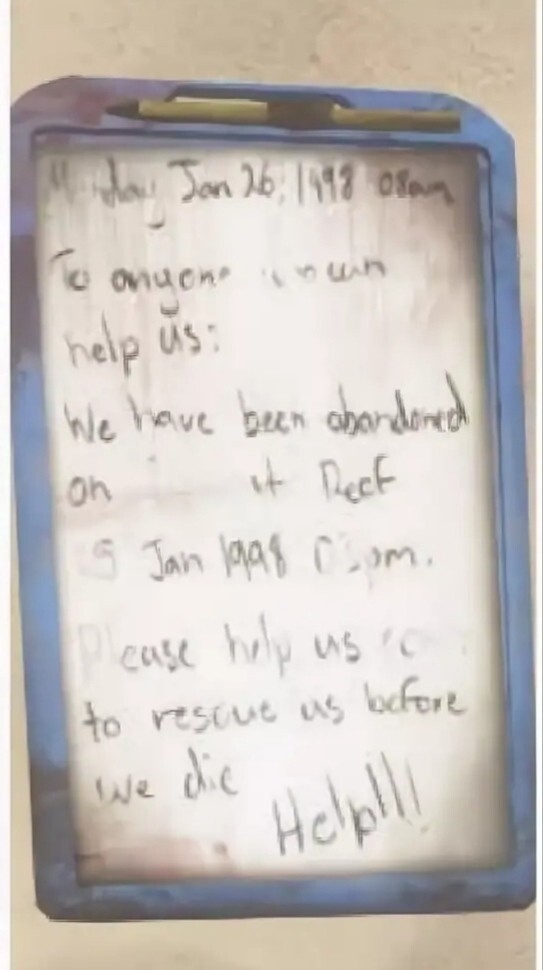 day Jan 26, 1998 08am
To anyone
help us:
We have been abandoned
on Reef
Jan 1998
Please help us
to rescue us before
we die
Help!!!